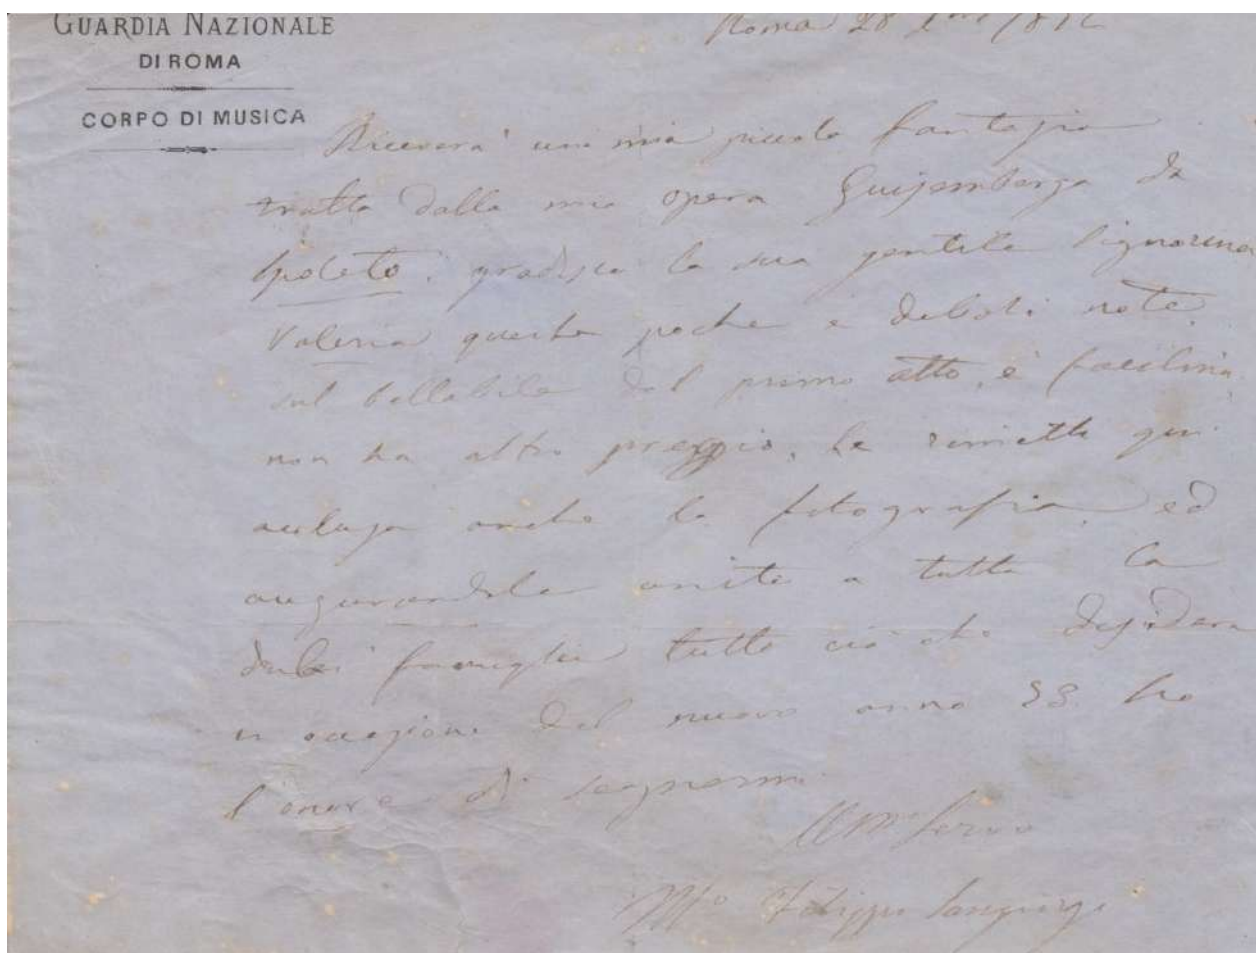 GUARDIA NAZIONALE
DI ROMA
CORPO DI MUSICA
Roma 28
Riceverà una mia piccola fantasia
tratta dalla mia opera Guisemberga da
Spoleto. gradisca la sua gentile Signorina
Valeria queste poche e deboli note
sul ballabile del primo atto, è facilina
non ha altro preggio. Le rimetto qui
acclusa anche la fotografia, ed
augurandole unito a tutta la
di lei famiglia tutto ciò che desidera
in occasione del nuovo anno 73. ho
l'onore di segnarmi
Umo Servo
Mo Filippo Sangiorgi